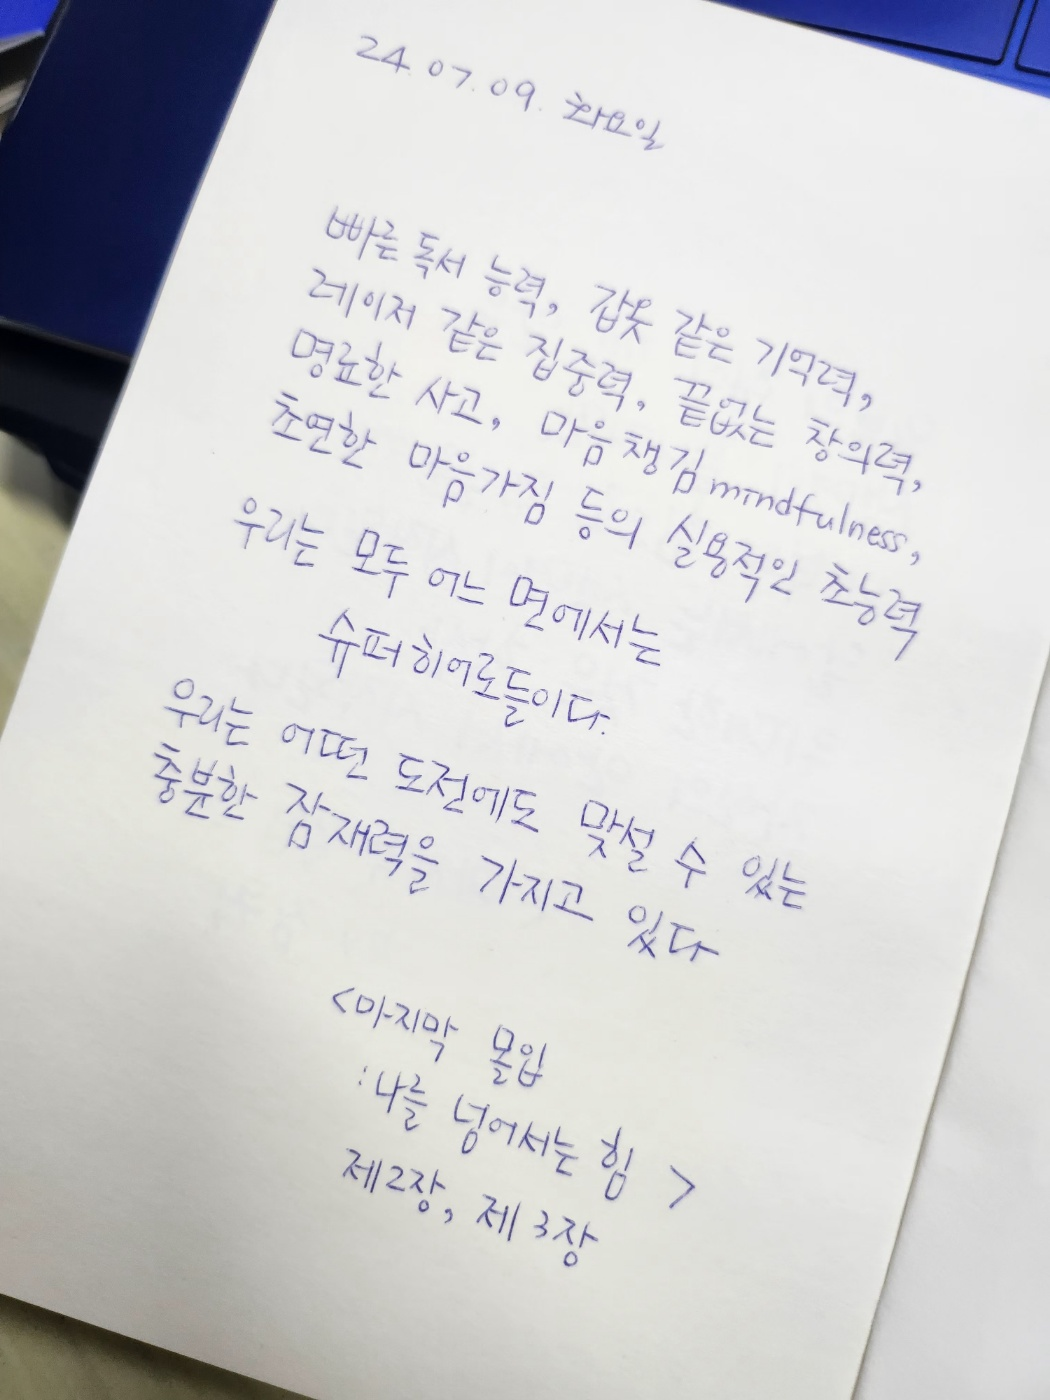 24. 07. 09. 화요일
빠른 독서 능력, 갑옷 같은 기억력,
레이저 같은 집중력, 끝없는 창의력,
명료한 사고, 마음챙김 mindfulness,
초연한 마음가짐 등의 실용적인 초능력
우리는 모두 어느 면에서는
슈퍼히어로들이다.
우리는 어떤 도전에도 맞설 수 있는
충분한 잠재력을 가지고 있다
<마지막 몰입
:나를 넘어서는 힘 >
제2장, 제3장